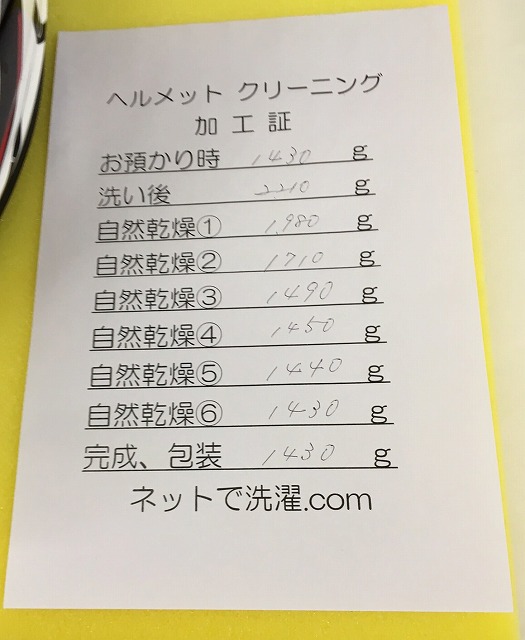 ヘルメット クリーニング
加工証
お預かり時 1430 g
洗い後 2210 g
自然乾燥① 1980 g
自然乾燥② 1710 g
自然乾燥③ 1490 g
自然乾燥④ 1450 g
自然乾燥⑤ 1440 g
自然乾燥⑥ 1430 g
完成、包装 1430 g
ネットで洗濯.com